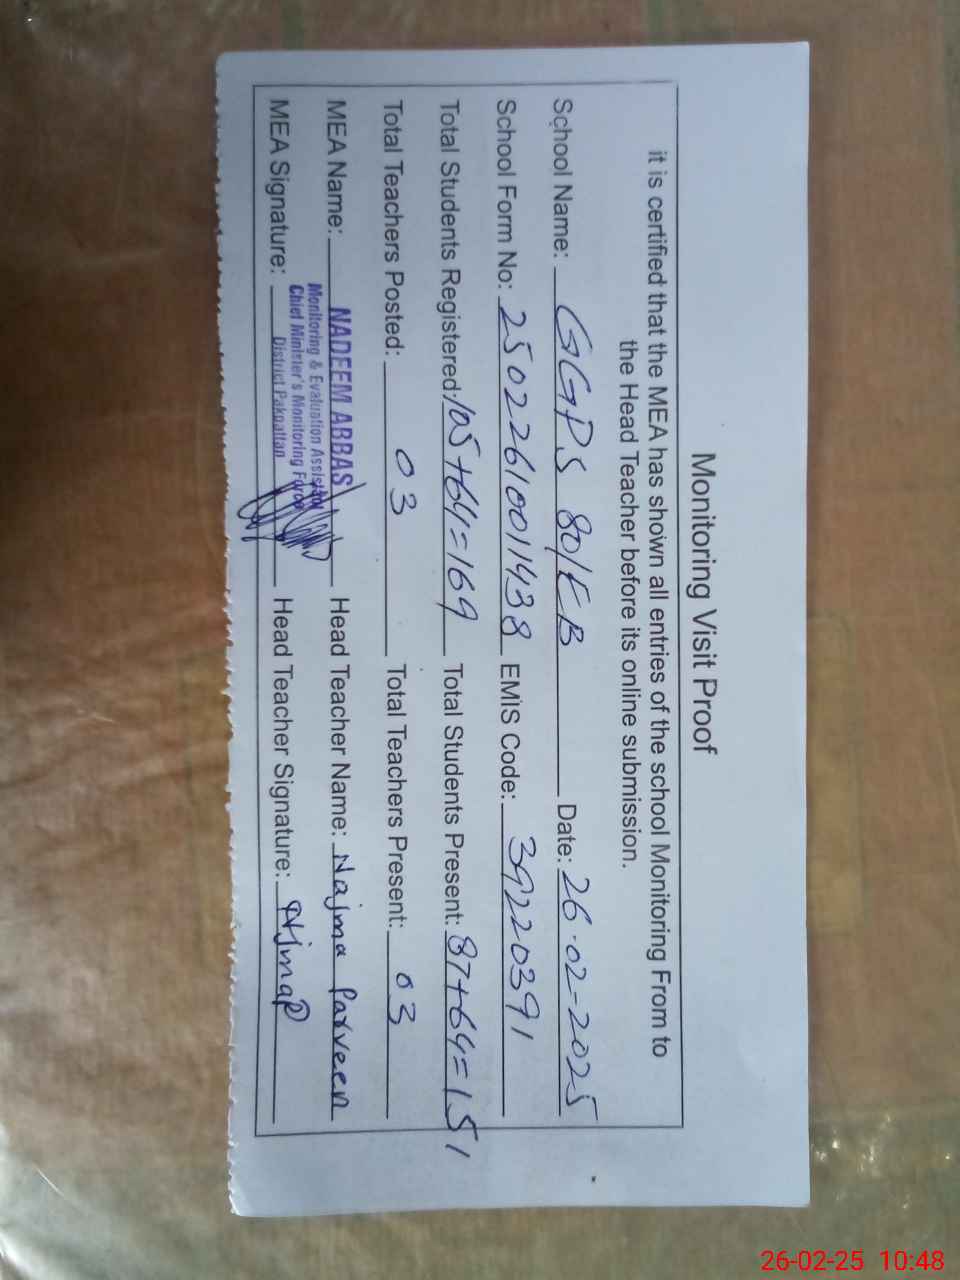 Monitoring Visit Proof
it is certified that the MEA has shown all entries of the school Monitoring From to
the Head Teacher before its online submission.
School Name: GGPS 80/EB Date: 26.02-2025
School Form No: 2502261001438 EMIS Code: 39220391
Total Students Registered: 105+64=169 Total Students Present: 87+64=151
Total Teachers Posted: 03 Total Teachers Present: 03
MEA Name: NADEEM ABBAS Head Teacher Name: Najma Parveen
Monitoring & Evaluation Assistant
Chief Minister's Monitoring Force
MEA Signature: District Pakpattan Head Teacher Signature: NjmaP
26-02-25 10:48